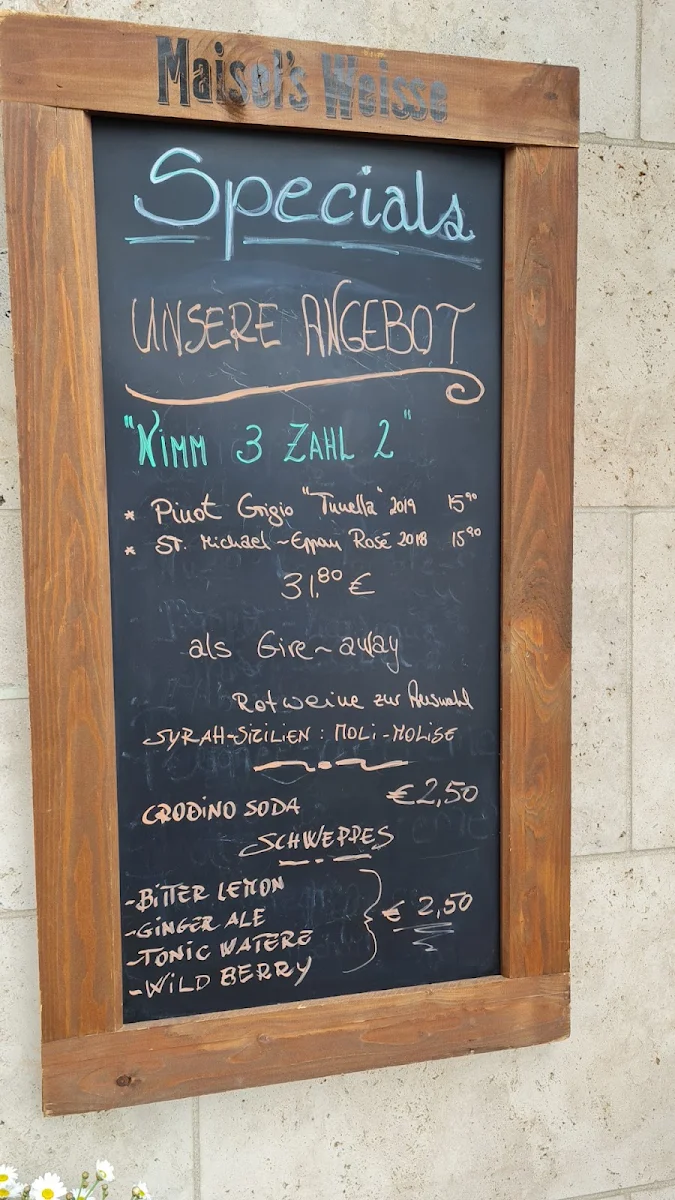 Maisel's Weisse
Specials
UNSERE ANGEBOT
"NIMM 3 ZAHL 2"
* Pinot Grigio "Tunella" 2019 15,90
* ST. Michael-Eppan Rosé 2018 15,90
31,80 €
als Give-away
Rotweine zur Auswahl
SYRAH-SIZILIEN : MOLI-MOLISE
CRODINO SODA €2,50
SCHWEPPES
-BITTER LEMON
-GINGER ALE
-TONIC WATERE
-WILD BERRY
€ 2,50